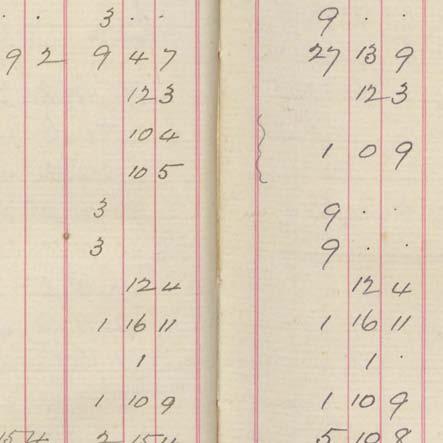 3 . . 9 . .
9 2 9 4 7 27 13 9
12 3 12 3
10 4
1 0 9
10 5
3 9 . .
3 9 . .
12 4 12 4
1 16 11 1 16 11
1 1 .
1 10 9 1 10 9
5 10 8